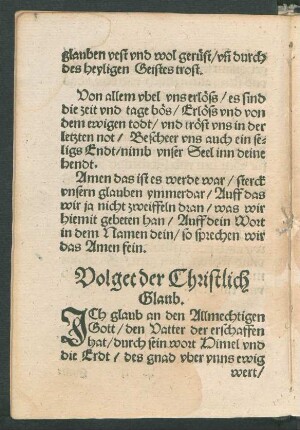 glauben vest vnd wol gerüst/vñ durch
des heyligen Geistes trost.
Von allem vbel vns erlöß/es sind
die zeit vnd tage bös/Erlöß vnd von
dem ewigen todt/vnd tröst vns in der
letzten not/Bescheer vns auch ein se-
ligs Endt/nimb vnser Seel inn deine
hendt.
Amen das ist es werde war/sterck
vnsern glauben ymmerdar/Auff das
wir ja nicht zweiffeln dran/was wir
hiemit gebeten han/Auff dein Wort
in dem Namen dein/so sprechen wir
das Amen fein.
Volget der Christlich
Glaub.
ICh glaub an den Allmechtigen
Gott/den Vatter der erschaffen
hat/durch sein wort Himel vnd
die Erdt/des gnad vber vnns ewig
wert/